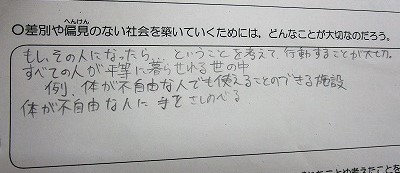 ○差別や偏見のない社会を築いていくためには、どんなことが大切なのだろう。
もし、その人になったら… ということを考えて、行動することが大切。
すべての人が平等に暮らせれる世の中
例、体が不自由な人でも使えることのできる施設
体が不自由な人に手をさしのべる
考えたことを